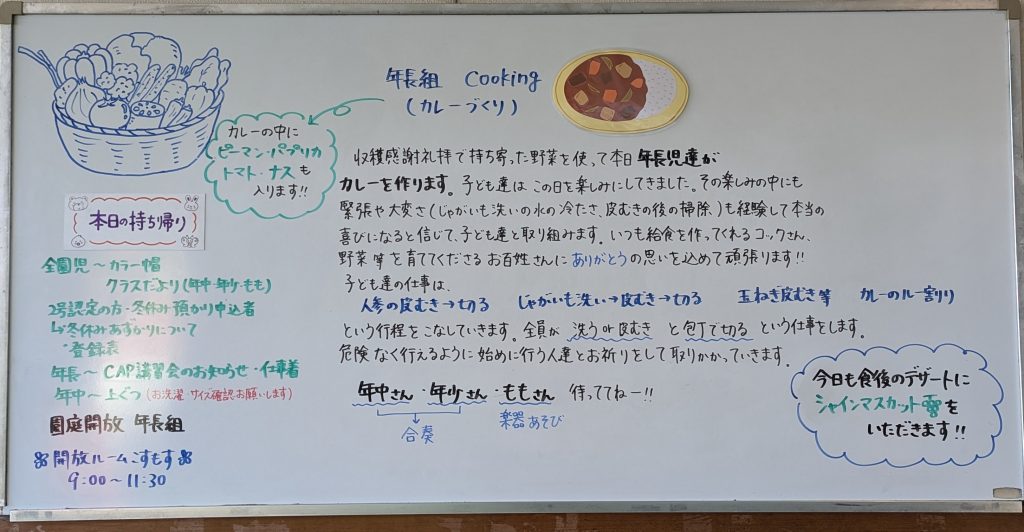 年長組 Cooking
(カレーづくり)
カレーの中に
ピーマン・パプリカ
トマト・ナスも
入ります!!
収穫感謝礼拝で持ち寄った野菜を使って本日 年長児達が
カレーを作ります。子ども達は この日を楽しみにしてきました。その楽しみの中にも
緊張や大変さ(じゃがいも洗いの水の冷たさ、皮むきの後の掃除)も経験して本当の
喜びになると信じて、子ども達と取り組みます。いつも給食を作ってくれるコックさん、
野菜等を育ててくださる お百姓さんに ありがとうの思いを込めて頑張ります!!
子ども達の仕事は、
人参の皮むき→切る じゃがいも洗い→皮むき→切る 玉ねぎ皮むき等 カレーのルー割り
という行程をこなしていきます。全員が 洗うor皮むき と包丁で切る という仕事をします。
危険なく行えるように 始めに行う人達とお祈りをして取りかかっていきます。
年中さん・年少さん・ももさん 待っててねー!!
合奏
楽器あそび
今日も食後のデザートに
シャインマスカットを
いただきます!!
本日の持ち帰り
全園児〜カラー帽
クラスだより(年中・年少・もも)
2号認定の方・冬休み預かり申込者
↳冬休みあずかりについて
・登録表
年長〜CAP講習会のお知らせ・仕事着
年中〜上ぐつ(お洗濯 サイズ確認お願いします)
園庭開放 年長組
開放ルームこすもす
9:00〜11:30